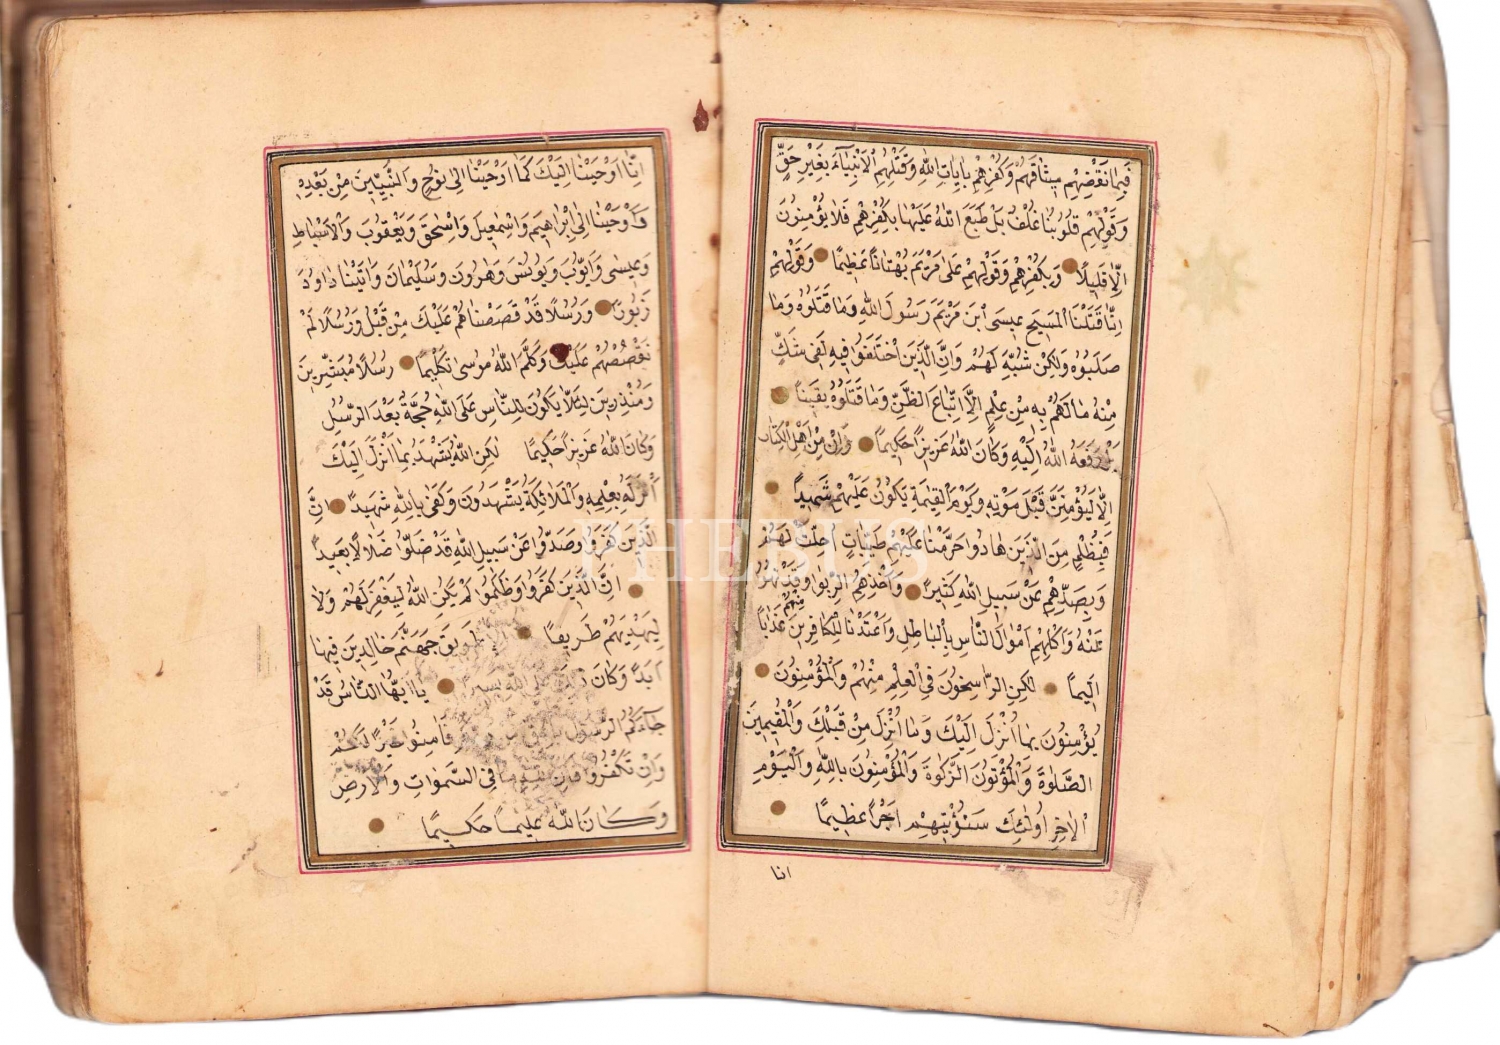 فَبِمَا نَقْضِهِمْ مِيثَاقَهُمْ وَكُفْرِهِمْ بِاٰيَاتِ اللّٰهِ وَقَتْلِهِمُ الْاَنْبِيَآءَ بِغَيْرِ حَقٍّ
وَقَوْلِهِمْ قُلُوبُنَا غُلْفٌ بَلْ طَبَعَ اللّٰهُ عَلَيْهَا بِكُفْرِهِمْ فَلَا يُؤْمِنُونَ
اِلَّا قَلِيلًا وَبِكُفْرِهِمْ وَقَوْلِهِمْ عَلٰى مَرْيَمَ بُهْتَانًا عَظِيمًا وَقَوْلِهِمْ
اِنَّا قَتَلْنَا الْمَسِيحَ عِيسَى ابْنَ مَرْيَمَ رَسُولَ اللّٰهِ وَمَا قَتَلُوهُ وَمَا
صَلَبُوهُ وَلٰكِنْ شُبِّهَ لَهُمْ وَاِنَّ الَّذِينَ اخْتَلَفُوا فِيهِ لَفِى شَكٍّ
مِنْهُ مَا لَهُمْ بِهِ مِنْ عِلْمٍ اِلَّا اتِّبَاعَ الظَّنِّ وَمَا قَتَلُوهُ يَقِينًا
بَلْ رَفَعَهُ اللّٰهُ اِلَيْهِ وَكَانَ اللّٰهُ عَزِيزًا حَكِيمًا وَاِنْ مِنْ اَهْلِ الْكِتَابِ
اِلَّا لَيُؤْمِنَنَّ قَبْلَ مَوْتِهِ وَيَوْمَ الْقِيٰمَةِ يَكُونُ عَلَيْهِمْ شَهِيدًا
فَبِظُلْمٍ مِنَ الَّذِينَ هَادُوا حَرَّمْنَا عَلَيْهِمْ طَيِّبَاتٍ اُحِلَّتْ لَهُمْ
وَبِصَدِّهِمْ عَنْ سَبِيلِ اللّٰهِ كَثِيرًا وَاَخْذِهِمُ الرِّبٰوا وَقَدْ نُهُوا
عَنْهُ وَاَكْلِهِمْ اَمْوَالَ النَّاسِ بِالْبَاطِلِ وَاَعْتَدْنَا لِلْكَافِرِينَ مِنْهُمْ عَذَابًا
اَلِيمًا لٰكِنِ الرَّاسِخُونَ فِى الْعِلْمِ مِنْهُمْ وَالْمُؤْمِنُونَ
يُؤْمِنُونَ بِمَا اُنْزِلَ اِلَيْكَ وَمَا اُنْزِلَ مِنْ قَبْلِكَ وَالْمُقِيمِينَ
الصَّلٰوةَ وَالْمُؤْتُونَ الزَّكٰوةَ وَالْمُؤْمِنُونَ بِاللّٰهِ وَالْيَوْمِ
الْاٰخِرِ اُولٰئِكَ سَنُؤْتِيهِمْ اَجْرًا عَظِيمًا
انا
اِنَّا اَوْحَيْنَا اِلَيْكَ كَمَا اَوْحَيْنَا اِلٰى نُوحٍ وَالنَّبِيِّينَ مِنْ بَعْدِهِ
وَاَوْحَيْنَا اِلٰى اِبْرٰهِيمَ وَاِسْمٰعِيلَ وَاِسْحٰقَ وَيَعْقُوبَ وَالْاَسْبَاطِ
وَعِيسٰى وَاَيُّوبَ وَيُونُسَ وَهٰرُونَ وَسُلَيْمَانَ وَاٰتَيْنَا دَاوُدَ
زَبُورًا وَرُسُلًا قَدْ قَصَصْنَاهُمْ عَلَيْكَ مِنْ قَبْلُ وَرُسُلًا لَمْ
نَقْصُصْهُمْ عَلَيْكَ وَكَلَّمَ اللّٰهُ مُوسٰى تَكْلِيمًا رُسُلًا مُبَشِّرِينَ
وَمُنْذِرِينَ لِئَلَّا يَكُونَ لِلنَّاسِ عَلَى اللّٰهِ حُجَّةٌ بَعْدَ الرُّسُلِ
وَكَانَ اللّٰهُ عَزِيزًا حَكِيمًا لٰكِنِ اللّٰهُ يَشْهَدُ بِمَا اَنْزَلَ اِلَيْكَ
اَنْزَلَهُ بِعِلْمِهِ وَالْمَلَائِكَةُ يَشْهَدُونَ وَكَفٰى بِاللّٰهِ شَهِيدًا اِنَّ
الَّذِينَ كَفَرُوا وَصَدُّوا عَنْ سَبِيلِ اللّٰهِ قَدْ ضَلُّوا ضَلَالًا بَعِيدًا
اِنَّ الَّذِينَ كَفَرُوا وَظَلَمُوا لَمْ يَكُنِ اللّٰهُ لِيَغْفِرَ لَهُمْ وَلَا
لِيَهْدِيَهُمْ طَرِيقًا اِلَّا طَرِيقَ جَهَنَّمَ خَالِدِينَ فِيهَا
اَبَدًا وَكَانَ عَلَى اللّٰهِ يَسِيرًا يَا اَيُّهَا النَّاسُ قَدْ
جَاءَكُمُ الرَّسُولُ فَاٰمِنُوا خَيْرًا لَكُمْ
وَاِنْ تَكْفُرُوا فَاِنَّ لِلّٰهِ مَا فِى السَّمٰوَاتِ وَالْاَرْضِ
وَكَانَ اللّٰهُ عَلِيمًا حَكِيمًا
PHEBUS